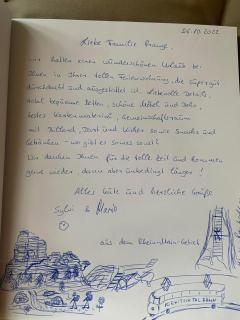 26.10.2022
Liebe Familie Prange,
wir hatten einen wunderschönen Urlaub bei
Ihnen in Ihrer tollen Ferienwohnung, die super gut
durchdacht und ausgestattet ist. Liebevolle Details,
dabei bequeme Betten, schöne Möbel und Deko,
tolles Kartenmaterial, Gemeinschaftsraum
mit Billard, Dart und Kicker sowie Snacks und
Getränken - wo gibt es sowas sonst?
Wir danken Ihnen für die tolle Zeit und kommen
gerne wieder, dann aber unbedingt länger!
Alles Gute und herzliche Grüße
Sylvi & Mario
aus dem Rhein-Main-Gebiet
KIRNITZSCHTALBAHN